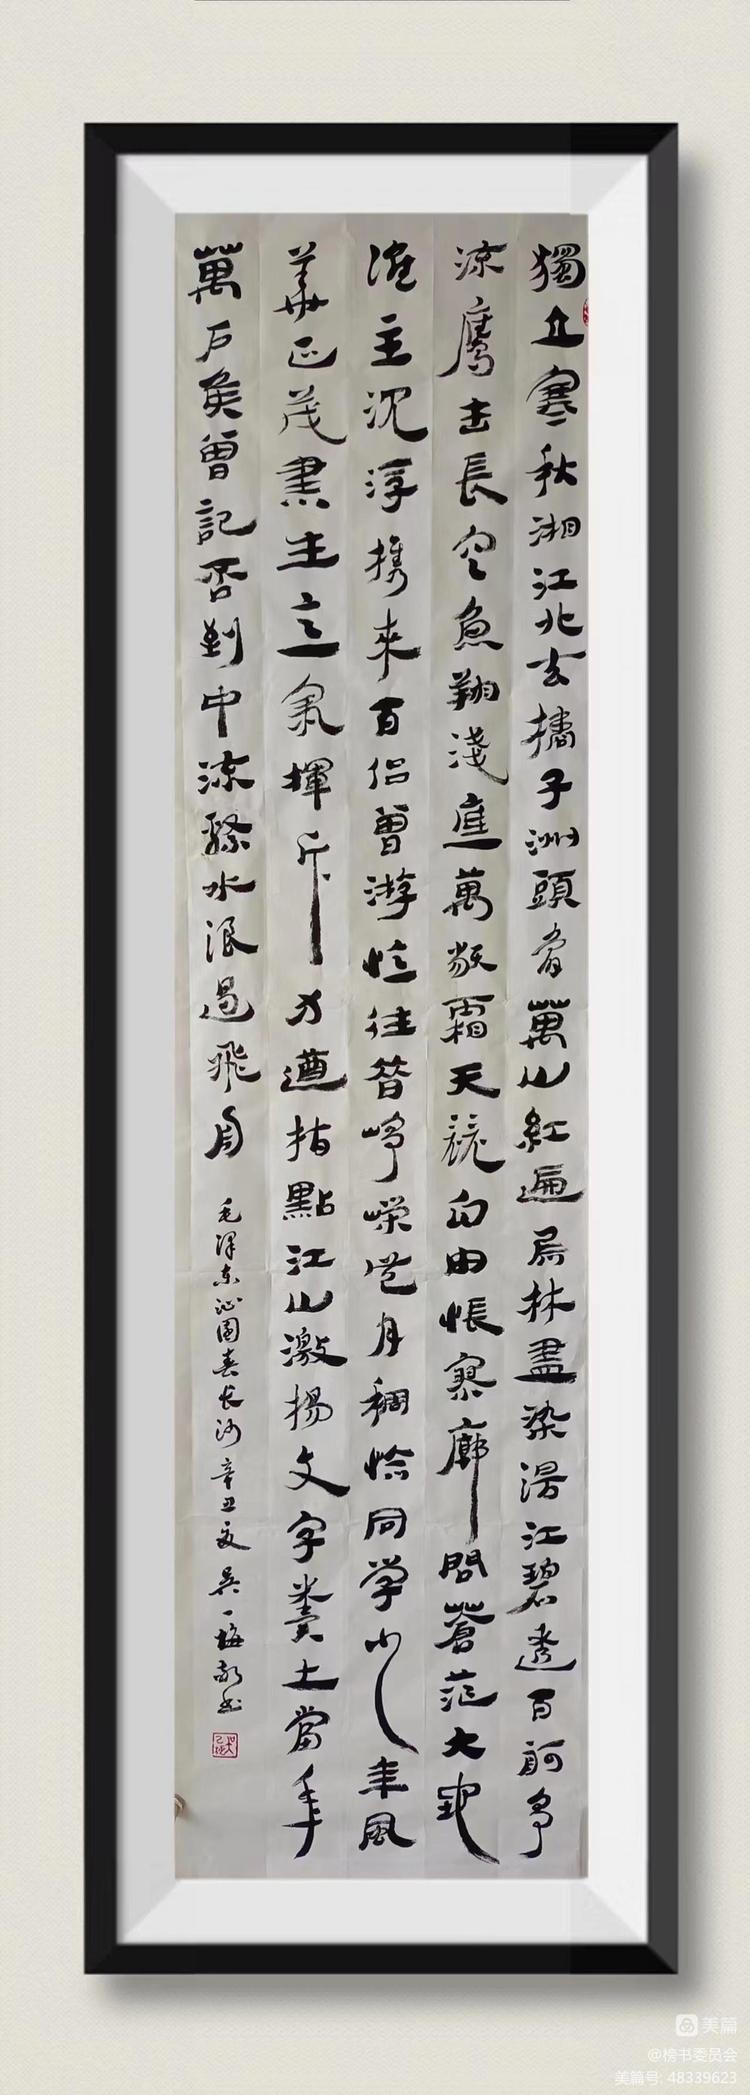 獨立寒秋湘江北去橘子洲頭看萬山紅遍層林盡染漫江碧透百舸爭
流鷹击長空魚翔淺底萬類霜天競自由悵寥廓問蒼茫大地
誰主沉浮携來百侣曾游憶往昔崢嶸歲月稠恰同學少年風
華正茂書生意氣揮斥方遒指點江山激揚文字糞土當年
萬户侯曾記否到中流擊水浪遏飛舟
毛澤东沁園春长沙辛丑夏吴一梅敬书
美篇
@榜书委员会
美篇号: 48339623